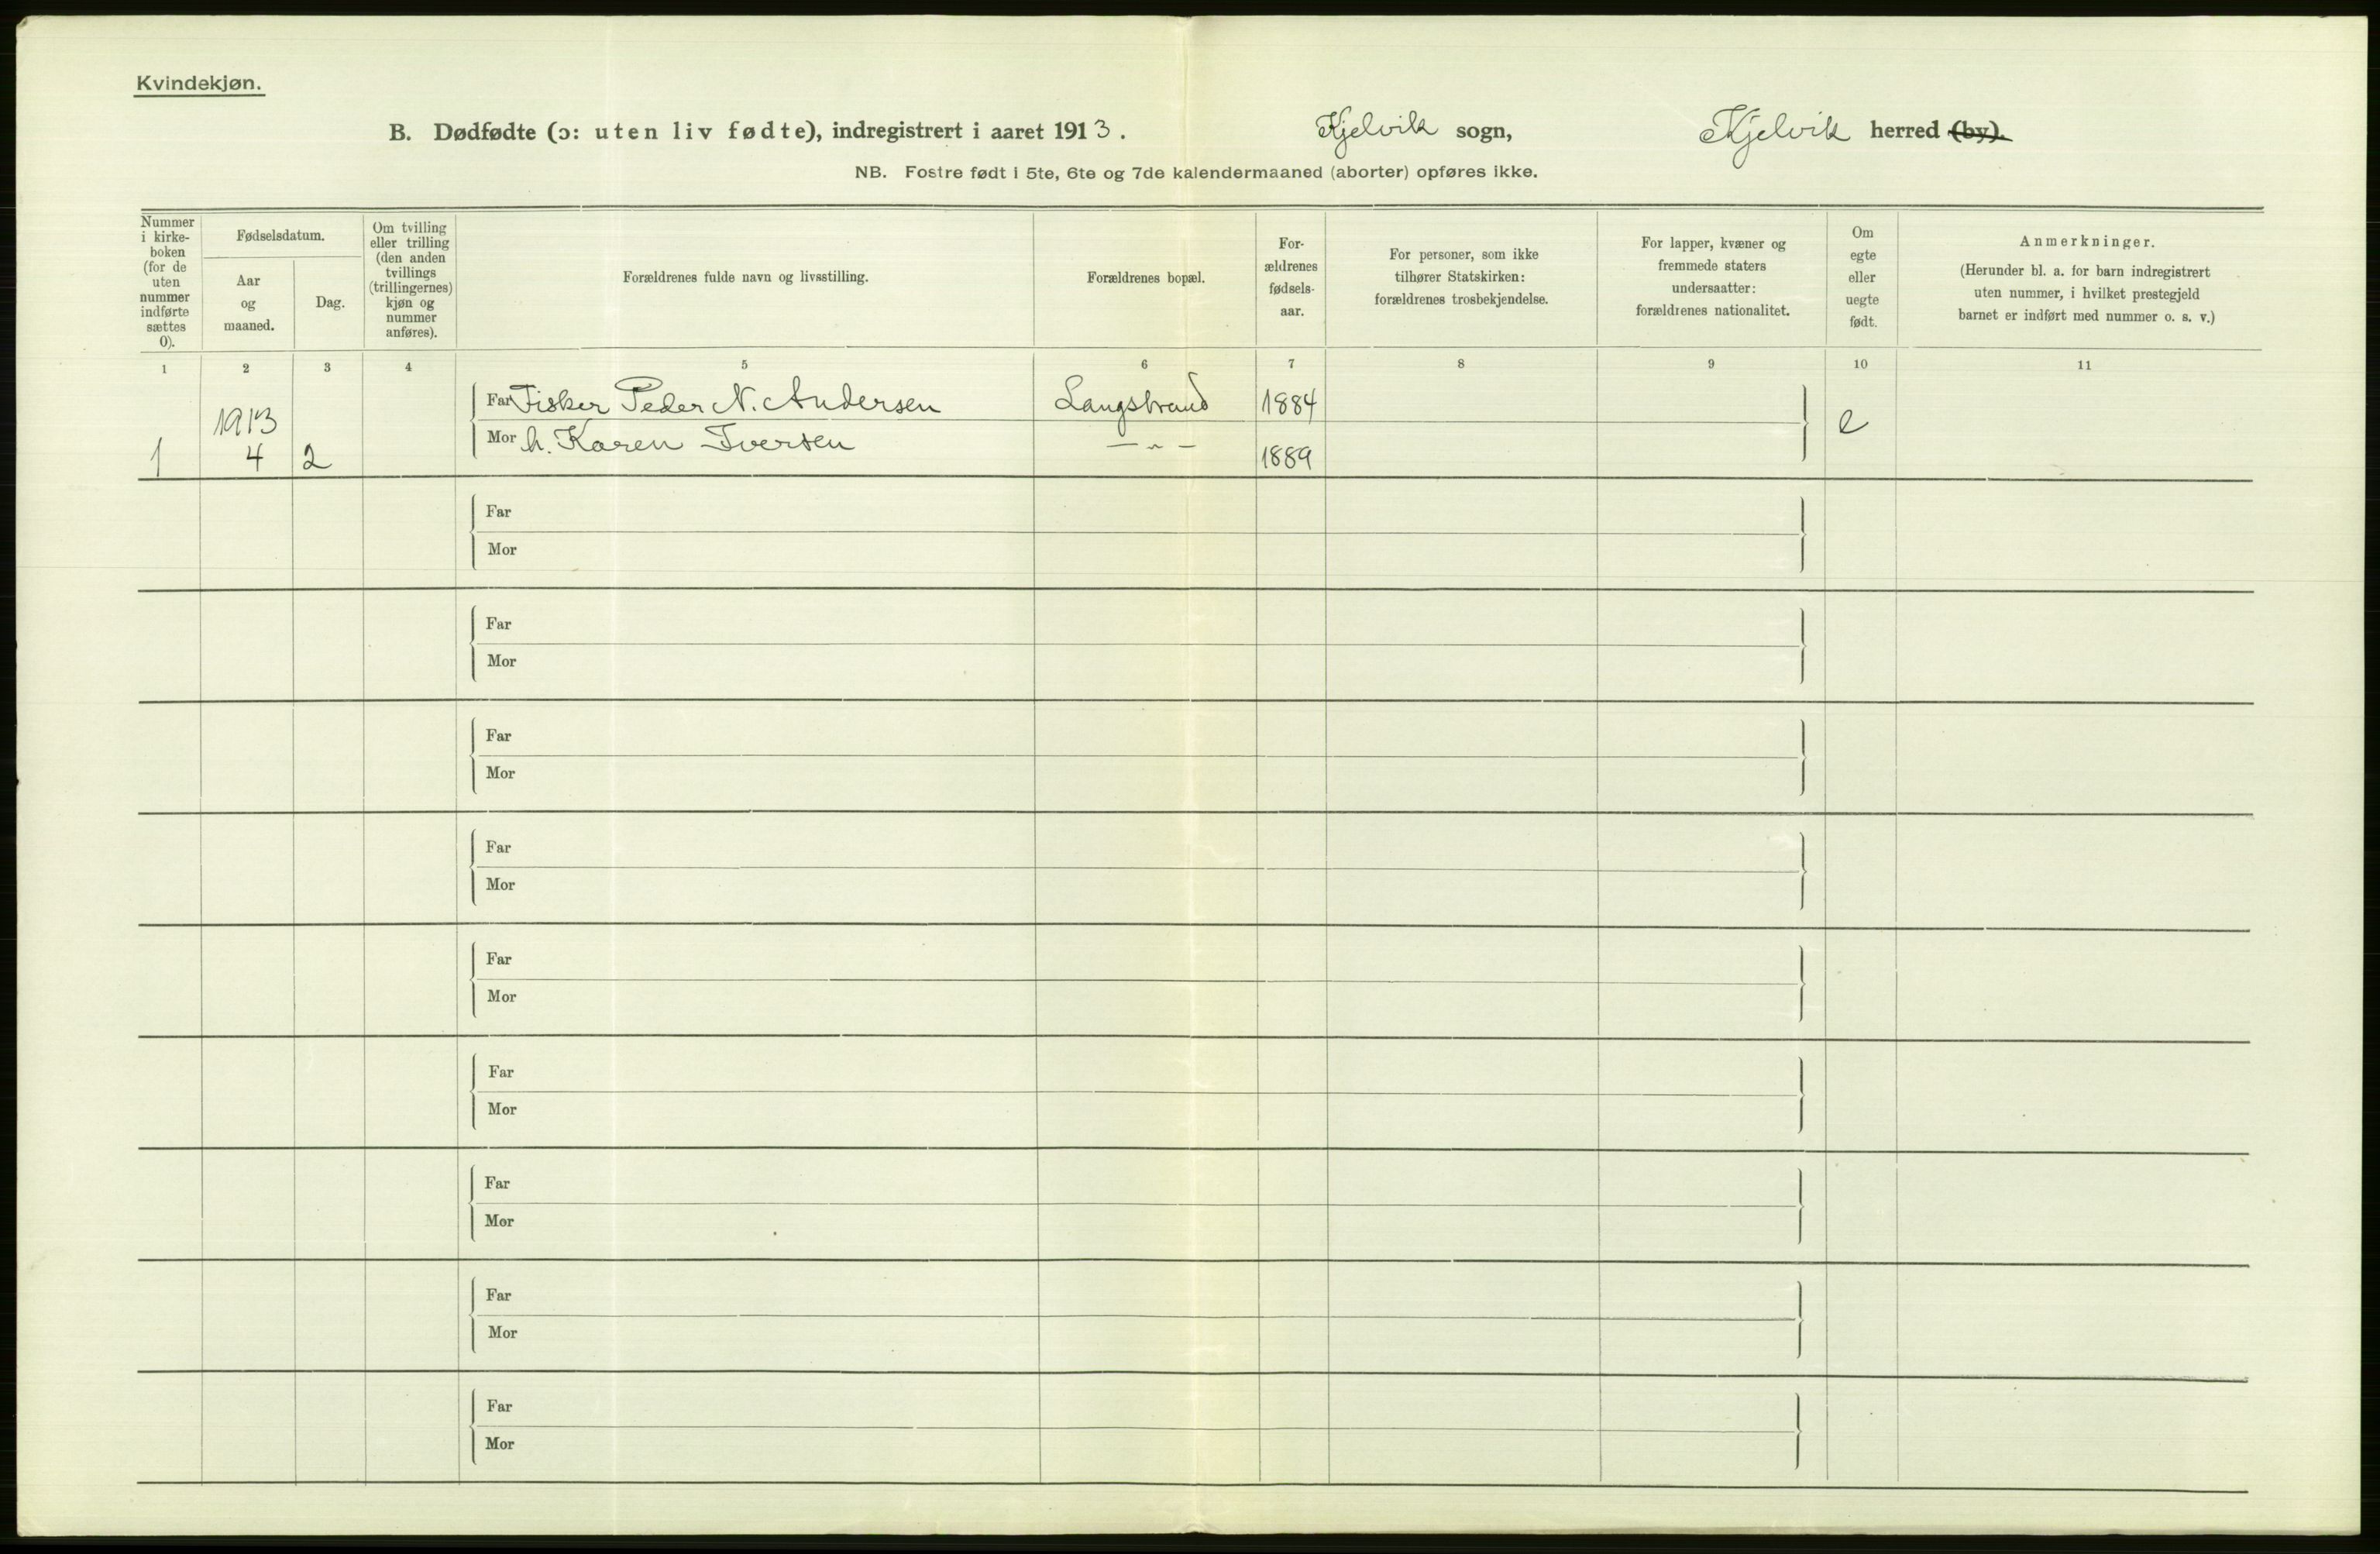 Kvindekjøn.
B. Dødfødte (ɔ: uten liv fødte), indregistrert i aaret 1913. Kjelvik sogn, Kjelvik herred (by).
NB. Fostre født i 5te, 6te og 7de kalendermaaned (aborter) opføres ikke.
Nummer
i kirke-
boken
(for de
uten
nummer
indførte
sættes
0).
Fødselsdatum.
Aar
og
maaned.
Dag.
Om tvilling
eller trilling
(den anden
tvillings
(trillingernes)
kjøn og
nummer
anføres).
Forældrenes fulde navn og livsstilling.
Forældrenes bopæl.
For-
ældrenes
fødsels-
aar.
For personer, som ikke
tilhører Statskirken:
forældrenes trosbekjendelse.
For lapper, kvæner og
fremmede staters
undersaatter:
forældrenes nationalitet.
Om
egte
eller
uegte
født.
Anmerkninger.
(Herunder bl. a. for barn indregistrert
uten nummer, i hvilket prestegjeld
barnet er indført med nummer o. s. v.)
1 2 3 4 5 6 7 8 9 10 11
1913
Far Fisker Peder N. Andersen Langstrand 1884
e
1 4 2
Mor h. Karen Iversen — „ — 1889
Far
Mor
Far
Mor
Far
Mor
Far
Mor
Far
Mor
Far
Mor
Far
Mor
Far
Mor
Far
Mor